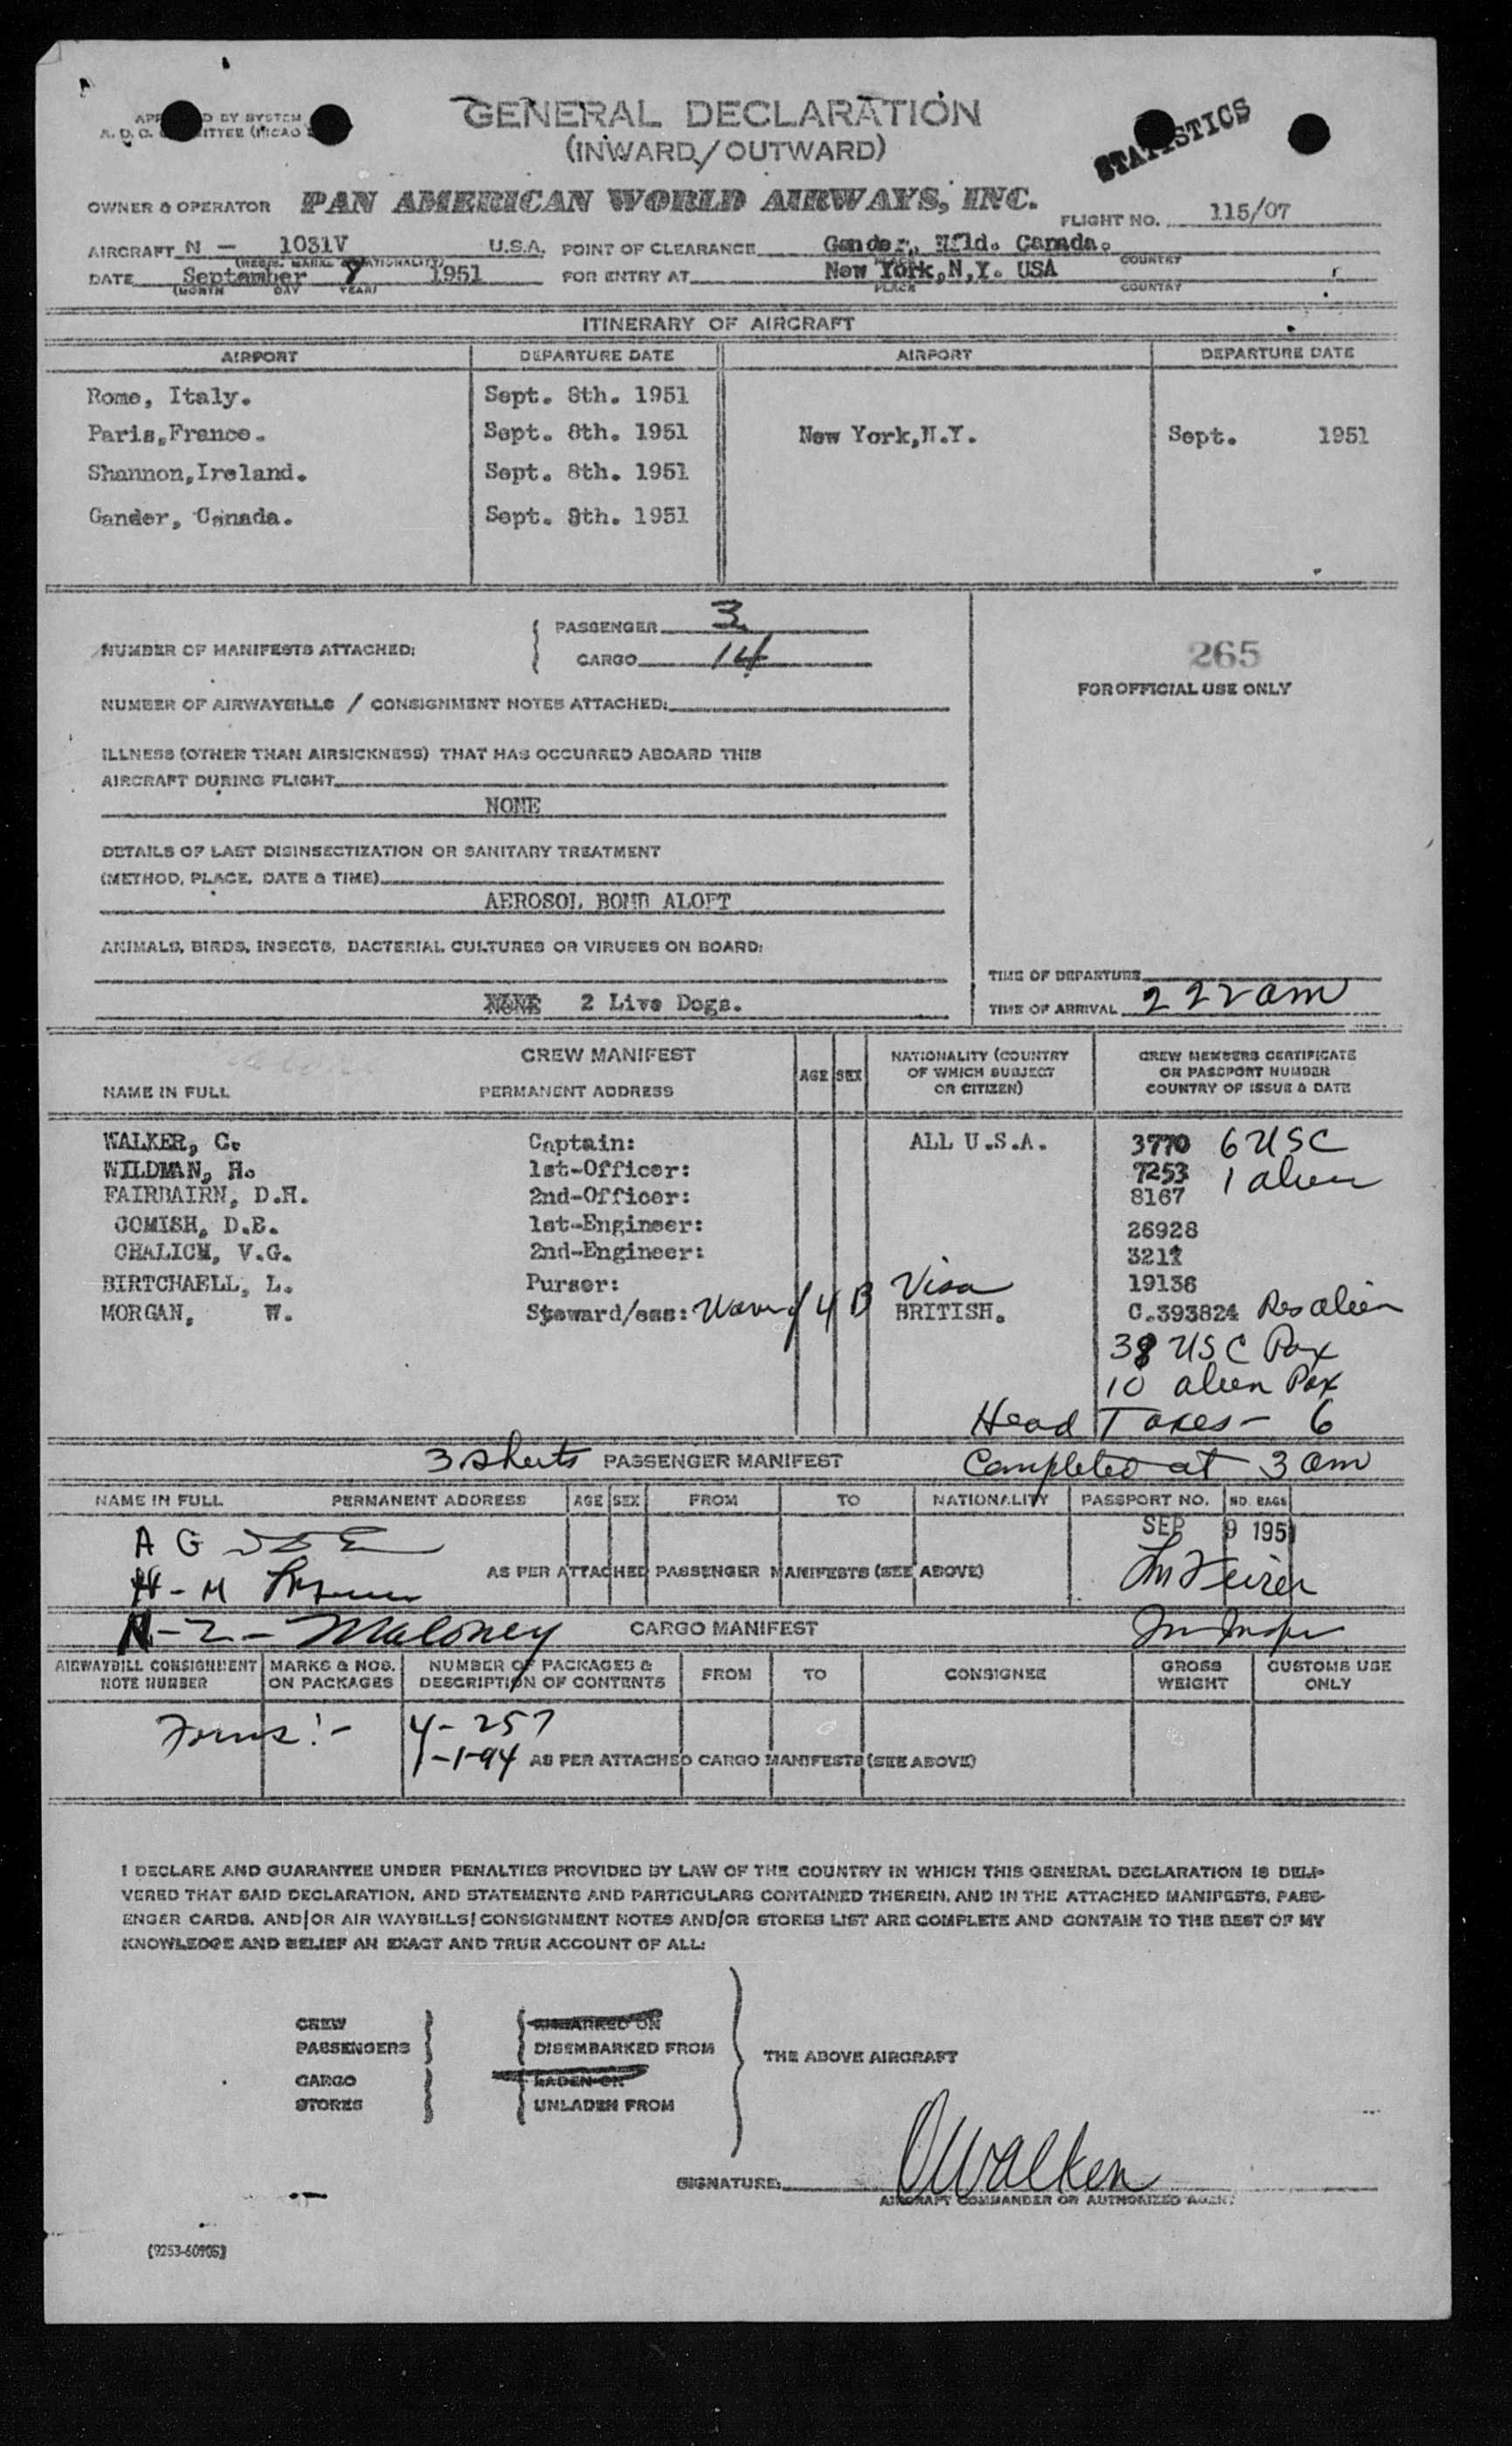 GENERAL DECLARATION
(INWARD/OUTWARD)
STATISTICS
OWNER & OPERATOR PAN AMERICAN WORLD AIRWAYS, INC. FLIGHT NO. 115/07
AIRCRAFT N - 1031V U.S.A. POINT OF CLEARANCE Gander, Nfld. Canada.
DATE September 1951 FOR ENTRY AT New York,N.Y. USA
(MONTH DAY YEAR) PLACE COUNTRY
ITINERARY OF AIRCRAFT
AIRPORT DEPARTURE DATE AIRPORT DEPARTURE DATE
Rome, Italy. Sept. 8th. 1951
Paris,France. Sept. 8th. 1951 New York,N.Y. Sept. 1951
Shannon,Ireland. Sept. 8th. 1951
Gander, Canada. Sept. 8th. 1951
NUMBER OF MANIFESTS ATTACHED: PASSENGER 3
CARGO 14
265
FOR OFFICIAL USE ONLY
NUMBER OF AIRWAYBILLS / CONSIGNMENT NOTES ATTACHED:
ILLNESS (OTHER THAN AIRSICKNESS) THAT HAS OCCURRED ABOARD THIS
AIRCRAFT DURING FLIGHT
NONE
DETAILS OF LAST DISINSECTIZATION OR SANITARY TREATMENT
(METHOD, PLACE, DATE & TIME)
AEROSOL BOMB ALOFT
ANIMALS, BIRDS, INSECTS, BACTERIAL CULTURES OR VIRUSES ON BOARD:
NONE 2 Live Dogs.
TIME OF DEPARTURE
TIME OF ARRIVAL 2 22 am
CREW MANIFEST
NAME IN FULL PERMANENT ADDRESS AGE SEX NATIONALITY (COUNTRY OF WHICH SUBJECT OR CITIZEN) CREW MEMBERS CERTIFICATE OR PASSPORT NUMBER COUNTRY OF ISSUE & DATE
WALKER, C. Captain: ALL U.S.A. 3770 6 USC
WILDMAN, H. 1st-Officer: 7253 1 alien
FAIRBAIRN, D.H. 2nd-Officer: 8167
COMISH, D.E. 1st-Engineer: 26928
CHALICH, V.G. 2nd-Engineer: 3211
BIRTCHAELL, L. Purser: Visa 19136
MORGAN, W. Steward/ess: BRITISH. C.393824 Res alien
38 USC Pax
10 alien Pax
Head Taxes - 6
3 sheets PASSENGER MANIFEST Completed at 3 am
NAME IN FULL PERMANENT ADDRESS AGE SEX FROM TO NATIONALITY PASSPORT NO. NO. BAGS
SEP 9 1951
A G
AS PER ATTACHED PASSENGER MANIFESTS (SEE ABOVE)
N-2- Maloney CARGO MANIFEST
AIRWAYBILL CONSIGNMENT NOTE NUMBER MARKS & NOS. ON PACKAGES NUMBER OF PACKAGES & DESCRIPTION OF CONTENTS FROM TO CONSIGNEE GROSS WEIGHT CUSTOMS USE ONLY
4-257
1-94 AS PER ATTACHED CARGO MANIFESTS (SEE ABOVE)
I DECLARE AND GUARANTEE UNDER PENALTIES PROVIDED BY LAW OF THE COUNTRY IN WHICH THIS GENERAL DECLARATION IS DELI-
VERED THAT SAID DECLARATION, AND STATEMENTS AND PARTICULARS CONTAINED THEREIN, AND IN THE ATTACHED MANIFESTS, PASS-
ENGER CARDS, AND/OR AIR WAYBILLS/CONSIGNMENT NOTES AND/OR STORES LIST ARE COMPLETE AND CONTAIN TO THE BEST OF MY
KNOWLEDGE AND BELIEF AN EXACT AND TRUE ACCOUNT OF ALL:
CREW EMBARKED ON
PASSENGERS DISEMBARKED FROM
THE ABOVE AIRCRAFT
CARGO LADEN ON
STORES UNLADEN FROM
SIGNATURE: CWalker
AIRCRAFT COMMANDER OR AUTHORIZED AGENT
(9253-60905)